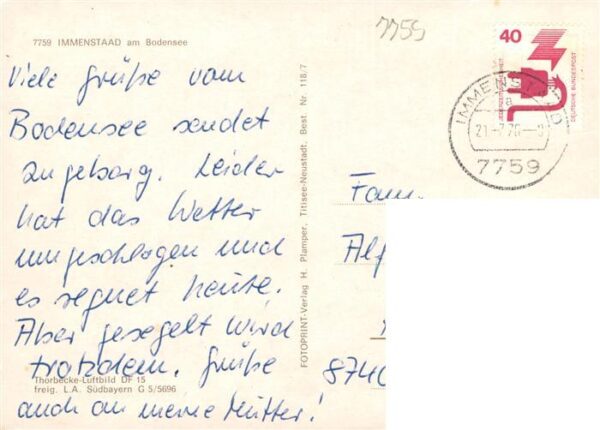 7755
7759 IMMENSTAAD am Bodensee
Viele Grüße vom
Bodensee sendet
Ingeborg. Leider
hat das Wetter
umgeschlagen und
es regnet heute.
Aber gesegelt wird
trotzdem. Grüße
auch an meine Mutter!
Thorbecke-Luftbild DF 15
freig. L.A. Südbayern G 5/5696
FOTOPRINT-Verlag H. Plamper, Titisee-Neustadt, Best. Nr. 118,7
40
DEUTSCHE BUNDESPOST
IMMENSTAAD
a
21.-7.76
7759
Fam.
Alf
8740